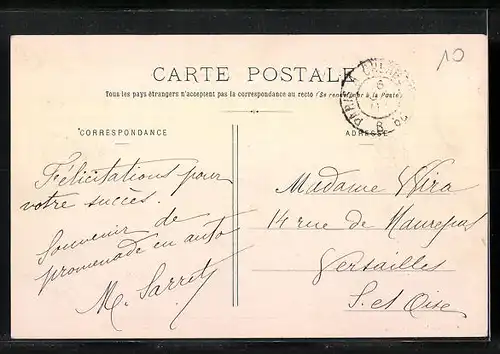 10
CARTE POSTALE
Tous les pays étrangers n'acceptent pas la correspondance au recto (Se renseigner à la Poste)
CORRESPONDANCE
ADRESSE
PARIS
6
8
Félicitations pour
votre succès.
Souvenir de
promenade en auto
M.
Madame
14 rue de Maurepas
Versailles
S. et Oise